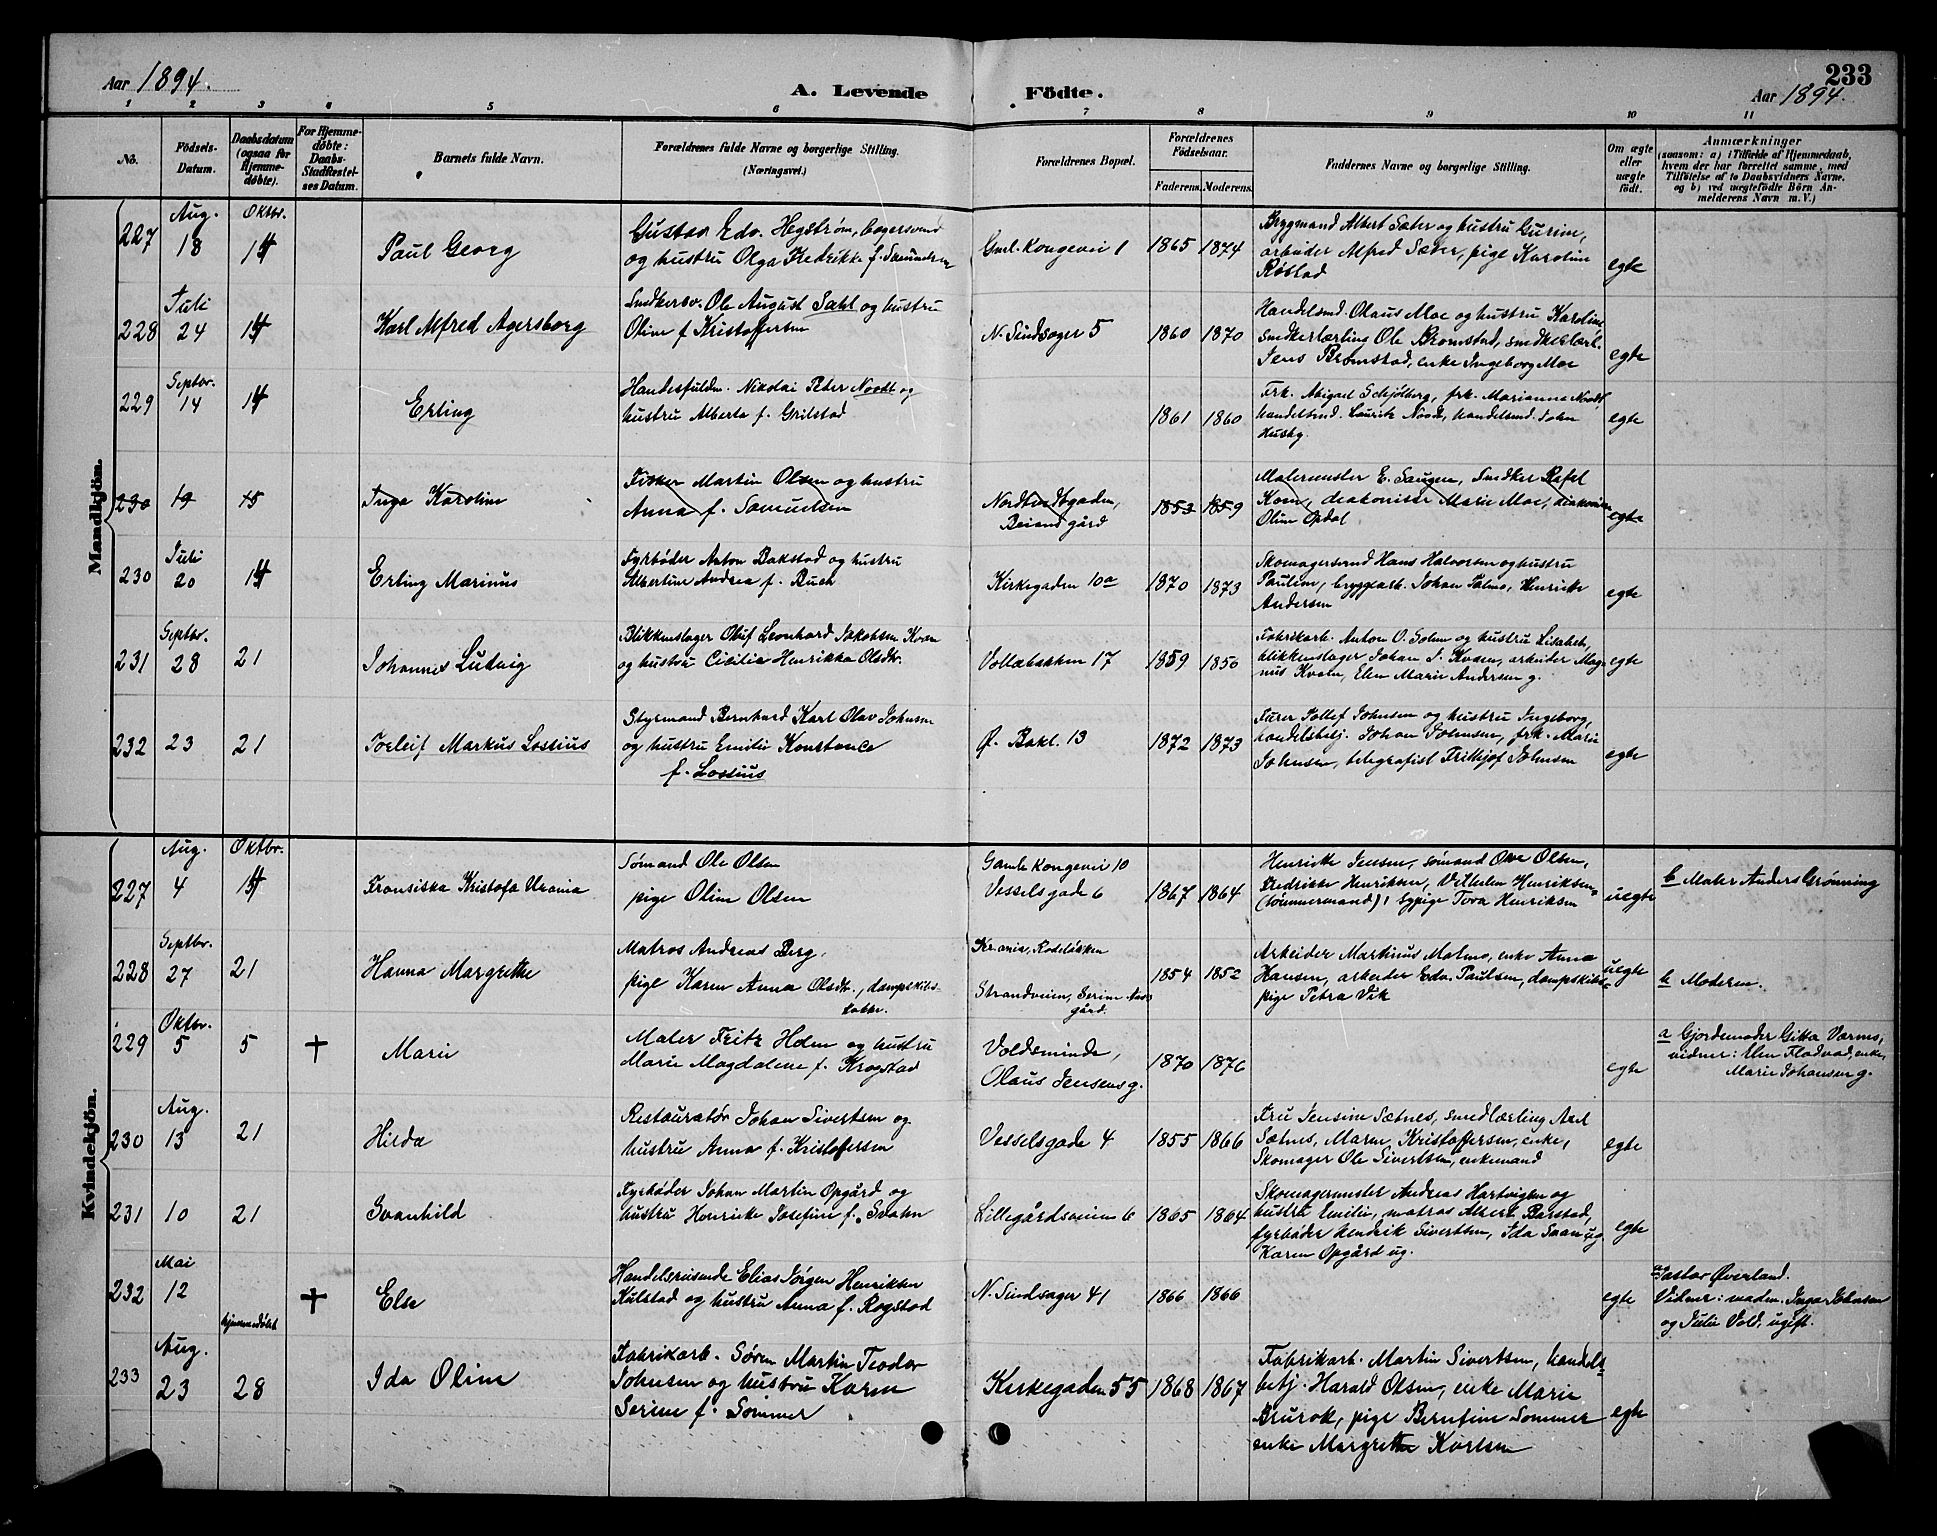 233
Aar 1894.
A. Levende Födte.
Aar 1894.
1 2 3 4 5 6 7 8 9 10 11
No.
Födsels-Datum.
Daabsdatum (ogsaa for Hjemme-döbte).
For Hjemme-döbte: Daabs-Stadfæstel-ses Datum.
Barnets fulde Navn.
Forældrenes fulde Navne og borgerlige Stilling. (Næringsvei.)
Forældrenes Bopæl.
Forældrenes Födselsaar.
Faderens. Moderens.
Faddernes Navne og borgerlige Stilling.
Om ægte eller uægte födt.
Anmærkninger
(saasom: a) i Tilfælde af Hjemmedaab, hvem der har forrettet samme, med Tilföielse af to Daabsvidners Navne, og b) ved uægtefödte Börn An-melderens Navn m. V.)
Mandkjön.
227 Aug. 18 Oktbr. 14 Paul Georg
Gustav Edv. Hegstrøm, bagersvend
og hustru Olga Fredrikke f.
Gml. Kongevei 1 1865 1874
Brygmand Albert Sæter og hustru Gurine,
arbeider Alfred Sæter, pige Karoline
Røstad
egte
228 Juli 24 14 Karl Alfred Agersborg
Snedkersv. Ole August Dahl og hustru
Oline f. Kristoffersen
N. Sindsager 5 1860 1870
Handelsmd. Olaus Moe og hustru Karoline,
snedkerlærling Ole Bromstad, snedkerlærl.
Jens Bromstad, enke Ingeborg Moe
egte
229 Septbr. 14 14 Erling
Handelsfuldm. Nikolai Peter Noodt og
hustru Alberta f. Grilstad
1861 1860
Frk. Abigael Schjølberg, frk. Marianna Noodt,
handelsmd. Lauritz Noodt, handelsmd. John
Husby.
egte
230 19 15 Inga Karoline
Fisker Martin Olsen og hustru
Anna f. Samuelsen
Beiand gård
1853 1859
Malermester E. Saugen, Snedker Rafel
Kom, diakonisse Marie Moe, diakonisse
Oline Opdal
egte
230 Juli 20 14 Erling Marinus
Fyrbøder Anton Bakstad og hustru
Albertine Andrea f. Buch
Kirkegaden 10a 1870 1873
Skomagersvend Hans Halvorsen og hustru
Pauline, bryggearb. Johan Malmo, Henrikke
Andersen
egte
231 Septbr. 28 21 Johannes Ludvig
Blikkenslager Oluf Leonhard Jakobsen Kvam
og hustru Cicilia Henrikka Olsdtr.
Vollabakken 17 1859 1850
Fabrikarb. Anton O. Solem og hustru Lisabeth,
blikkenslager Johan J. Kvam, arbeider Mag-
nus Kvam, Elen Marie Andersen g.
egte
232 23 21 Torleif Markus Lossius
Styrmand Bernhard Karl Olav Johnsen
og hustru Emilie Konstance
f. Lossius
Ø. Bakl. 13 1872 1873
Furer Tollef Johnsen og hustru Ingeborg,
handelsbetj. Johan Johnsen, frk. Marie
Johnsen, telegrafist Frithjof Johnsen
egte
Kvindekjön.
227 Aug. 4 Oktbr. 14 Fransiska Kristofa Urania
Sømand Ole Olsen
pige Oline Olsen
Gamle Kongevei 10
Vesselsgade 6
1867 1864
Henrikke Jensen, sømand Ove Olsen,
Fredrikke Henriksen, Vilhelm Henriksen
(tømmermand), sypige Tora Henriksen
uegte
b Maler Anders Grønning
228 Septbr. 27 21 Hanna Margrethe
Matros Andreas Berg,
pige Karen Anna Olsdtr., dampskibs-
kokke.
Krania, Rodeløkken
Strandveien, Serine
gård.
1854 1852
Arbeider Martinus Malmo, enke Anna
Hansen, arbeider Edv. Paulsen, dampskibs-
pige Petra Vik
uegte
b Moderen.
229 Oktbr. 5 5 + Marie
Maler Fritz Holm og hustru
Marie Magdalene f. Krogstad
Voldsminde,
Olaus Jensens g.
1870 1876
egte
a Gjordemoder Gitta Værnes,
vidner: Elen Fladvad, enke,
Marie Johansen g.
230 Aug. 13 21 Hilda
Restauratør Johan Sivertsen og
hustru Anna f. Kristoffersen
Vesselsgade 4 1855 1866
Fru Jensine Sætnes, smedlærling Axel
Sætnes, Maren Kristoffersen, enke,
Skomager Ole Sivertsen, enkemand
egte
231 10 21 Svanhild
Fyrbøder Johan Martin Opgård og
hustru Henrikke Josefine f. Svahn
Lillegårdsveien 6 1865 1864
Skomagermester Andreas Hartvigsen og
hustru Emilie, matros Albert Barstad,
fyrbøder Hendrik Sivertsen, Ida Svan ug.
Karen Opgård ug.
egte
232 Mai 12 hjemmedøbt + Else
Handelsreisende Elias Jørgen Henriksen
Kulstad og hustru Anna f. Rogstad
N. Sindsager 41 1866 1866
egte
a Pastor Øverland.
Vidner: madm. Inga Johnsen
og Julie Vold, ugift.
233 Aug. 23 28 Ida Oline
Fabrikarb. Søren Martin Teodor
Johnsen og hustru Karen
Serine f. Sommer
Kirkegaden 55 1868 1867
Fabrikarb. Martin Sivertsen, handels-
betj. Harald Olsen, enke Marie
Brurok, pige Berntine Sommer
enke Margrethe Karlsen
egte